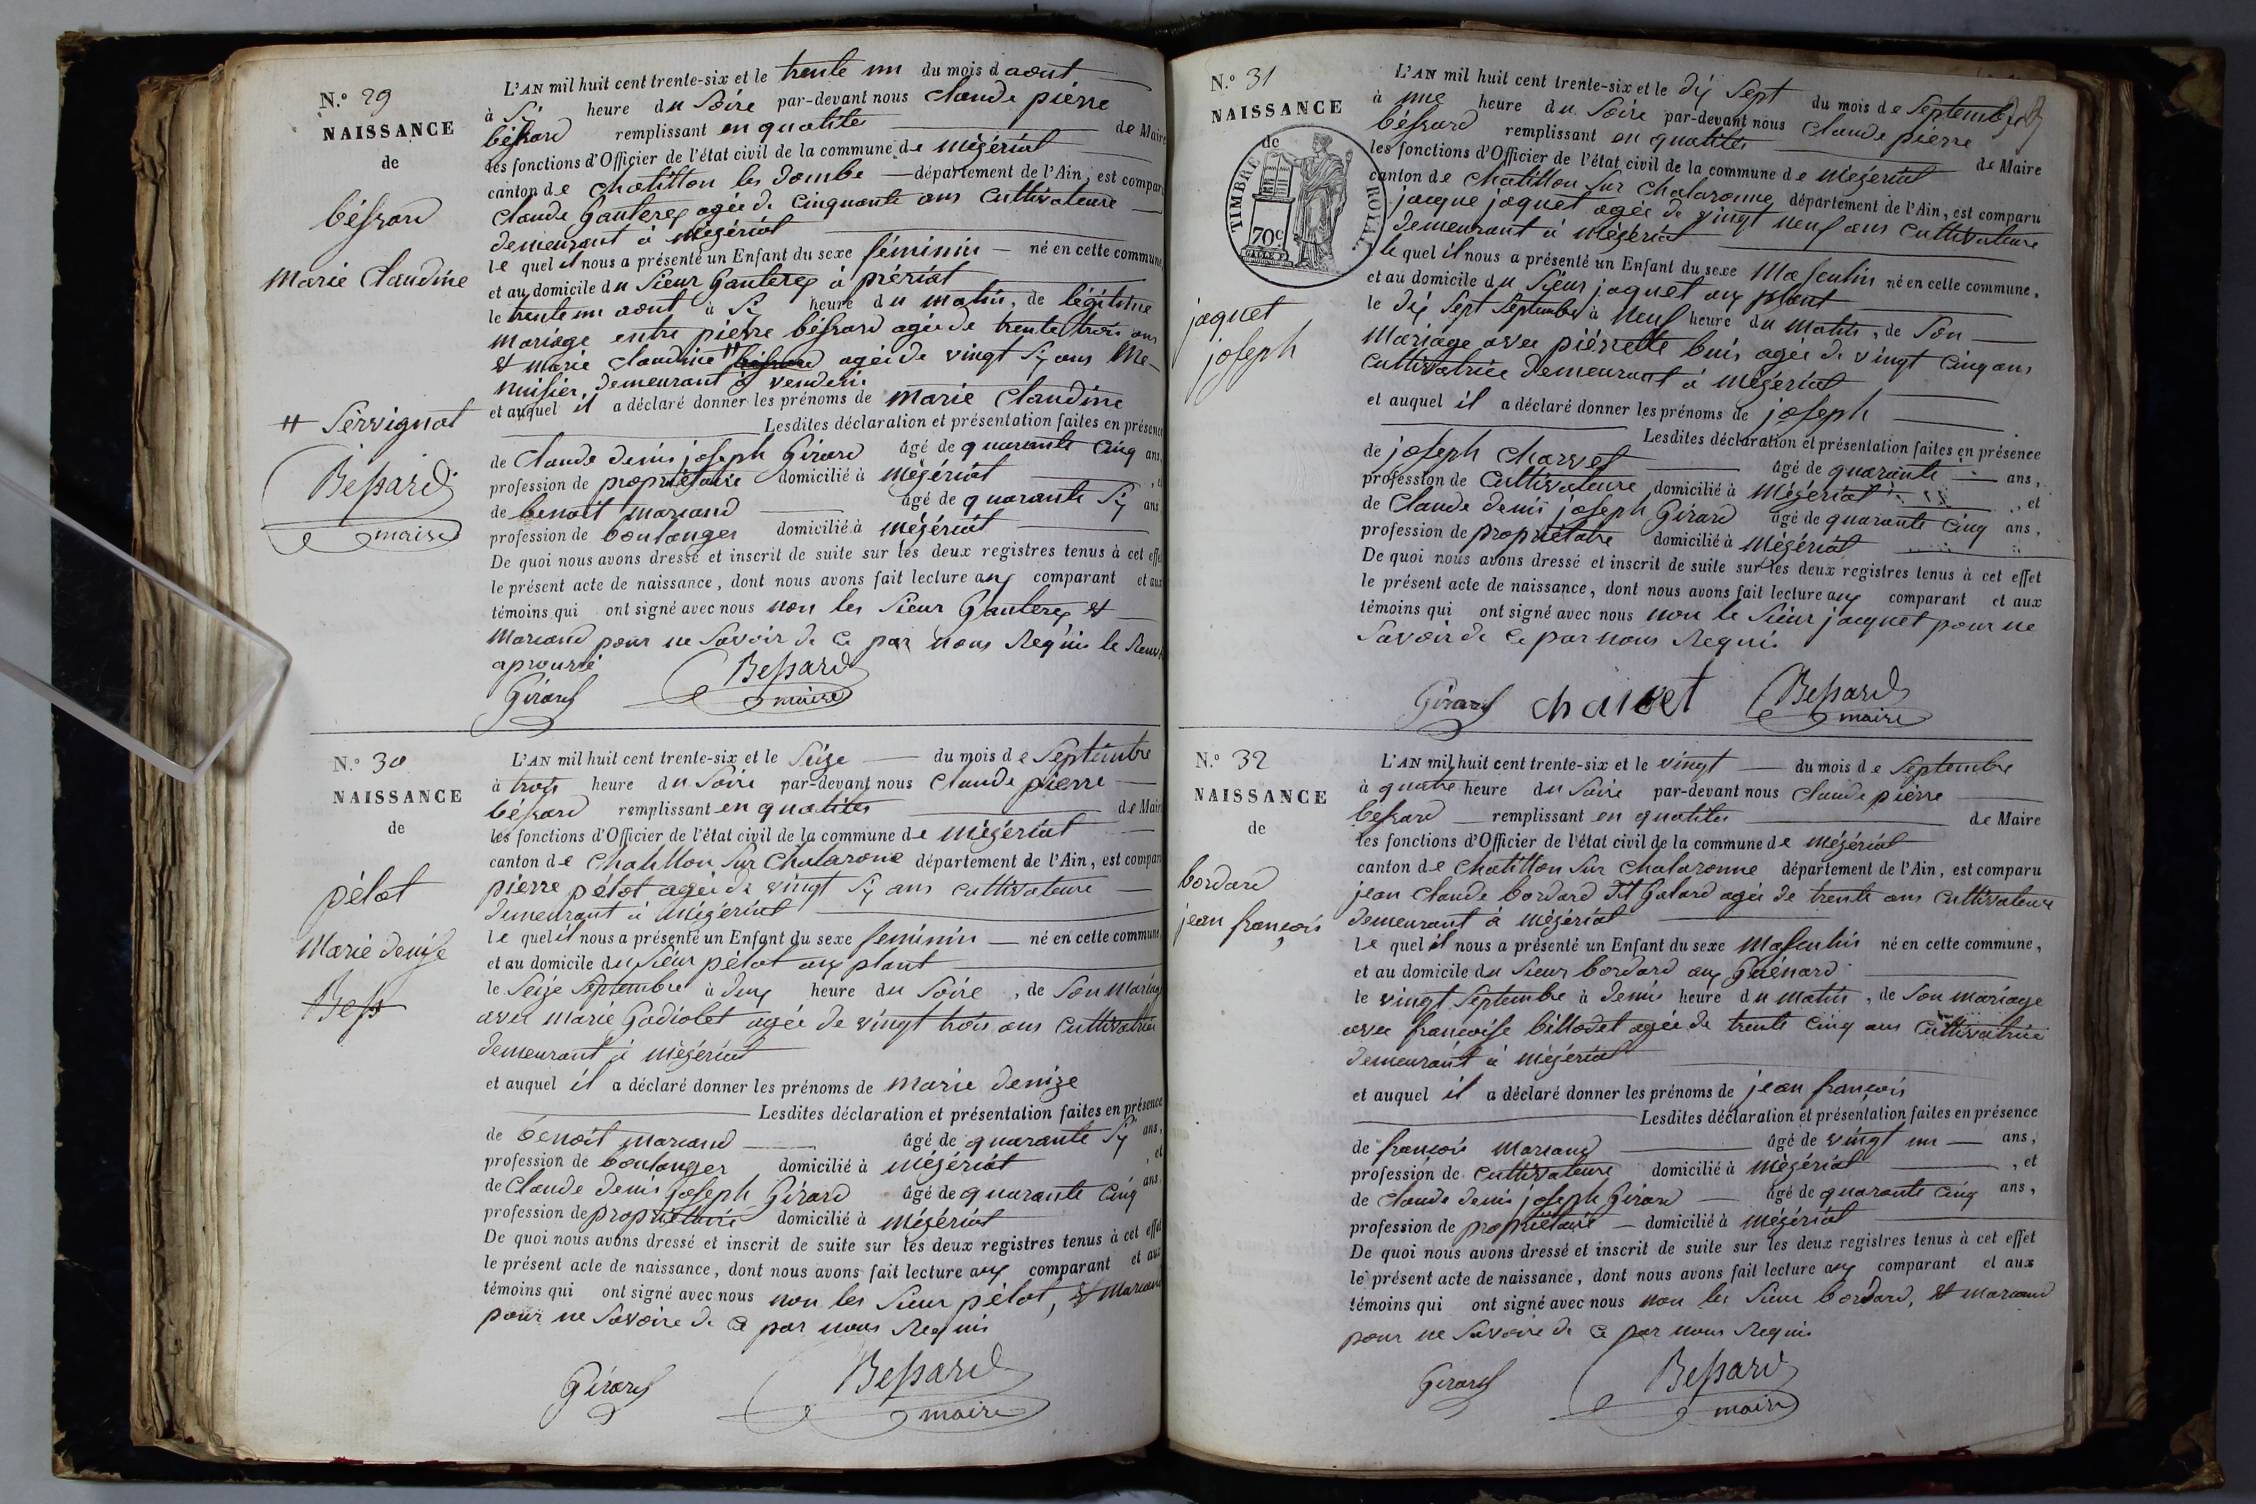 N.° 29
NAISSANCE
de
béssard
Marie Claudine
L'AN mil huit cent trente-six et le trente un du mois d aout
à Six heure du Soire par-devant nous Claude pierre
béssard remplissant en qualités de Maire
les fonctions d'Officier de l'état civil de la commune de Mézériat
canton de Chatillon les Dombe département de l'Ain, est comparu
Claude Gauterex agée de Cinquante ans Cultivateure
demeurant à Mézériat
le quel il nous a présenté un Enfant du sexe féminin né en cette commune,
et au domicile du Sieur Gauterex à piériat
le trente un aout à Six heure du matin, de légitime
mariage entre pierre béssard agée de trente trois ans
et marie claudine # béssard agée de vingt Six ans Me-
nuisier, demeurant à vendein
et auquel il a déclaré donner les prénoms de Marie Claudine
# Servignat
Bessard
maire
Lesdites déclaration et présentation faites en présence
de Claude denis joseph Girard âgé de quarante cinq ans,
profession de propriétaire domicilié à Mézériat, et
de benoit marand âgé de quarante Six ans
profession de boulanger domicilié à Mézériat
De quoi nous avons dressé et inscrit de suite sur les deux registres tenus à cet effet
le présent acte de naissance, dont nous avons fait lecture aux comparant et aux
témoins qui ont signé avec nous non les Sieur Gauterex et
Marand pour ne Savoir de Ce par nous Requis le Renvoi
aprouvé
Girard Bessard
maire
N.° 30
NAISSANCE
de
pélot
Marie denise
Bess
L'AN mil huit cent trente-six et le Seize du mois de Septembre
à trois heure du Soire par-devant nous Claude pierre
béssard remplissant en qualités de Maire
les fonctions d'Officier de l'état civil de la commune de Mézériat
canton de Chatillon Sur Chalarone département de l'Ain, est comparu
pierre pélot agée de vingt Six ans cultivateure
demeurant à Mézériat
le quel il nous a présenté un Enfant du sexe feminin né en cette commune
et au domicile du Sieur pélot aux plant
le Seize Septembre à deux heure du Soire, de Son Mariage
avec marie Godiolet agée de vingt trois ans Cultivatrice
demeurant à Mézériat
et auquel il a déclaré donner les prénoms de marie denize
Lesdites déclaration et présentation faites en présence
de benoit marand âgé de quarante Six ans,
profession de boulanger domicilié à Mézériat, et
de Claude denis joseph Girard âgé de quarante Cinq ans,
profession de propriétaire domicilié à Mézériat
De quoi nous avons dressé et inscrit de suite sur les deux registres tenus à cet effet
le présent acte de naissance, dont nous avons fait lecture aux comparant et aux
témoins qui ont signé avec nous non les Sieur pélot, et Marand
pour ne Savoire de Ce par nous Requis
Girard Bessard
maire
N.° 31
NAISSANCE
de
TIMBRE ROYAL
70c
jaquet
joseph
L'AN mil huit cent trente-six et le dix Sept du mois de Septembre
à une heure du Soire par-devant nous Claude pierre
béssard remplissant en qualités de Maire
les fonctions d'Officier de l'état civil de la commune de Mézériat
canton de Chatillon Sur Chalaronne, département de l'Ain, est comparu
jacque jaquet agée de vingt neuf ans cultivateure
demeurant à Mézériat
le quel il nous a présenté un Enfant du sexe Masculin né en cette commune,
et au domicile du Sieur jaquet aux plant
le dix Sept Septembre à Neuf heure du Matin, de Son
Mariage avec pierrette buis agée de vingt Cinq ans
Cultivatrice demeurant à Mézériat
et auquel il a déclaré donner les prénoms de joseph
Lesdites déclaration et présentation faites en présence
de joseph charvet âgé de quarante ans,
profession de Cultivateure domicilié à Mézériat, et
de Claude denis joseph Girard âgé de quarante Cinq ans,
profession de propriétaire domicilié à Mézériat
De quoi nous avons dressé et inscrit de suite sur les deux registres tenus à cet effet
le présent acte de naissance, dont nous avons fait lecture aux comparant et aux
témoins qui ont signé avec nous non le Sieur jacquet pour ne
Savoir de Ce par nous Requis
Girard charvet Bessard
maire
N.° 32
NAISSANCE
de
bordard
jean françois
L'AN mil huit cent trente-six et le vingt du mois de Septembre
à quatre heure du Soire par-devant nous Claude pierre
béssard remplissant en qualités de Maire
les fonctions d'Officier de l'état civil de la commune de Mézériat
canton de Chatillon Sur Chalaronne département de l'Ain, est comparu
jean Claude bordard dit Galard agée de trente ans Cultivateure
demeurant à Mézériat
le quel il nous a présenté un Enfant du sexe Masculin né en cette commune,
et au domicile du Sieur bordard aux Guénard
le vingt Septembre à demie heure du Matin, de Son mariage
avec françoise billodet agée de trente Cinq ans Cultivatrice
demeurant à Mézériat
et auquel il a déclaré donner les prénoms de jean françois
Lesdites déclaration et présentation faites en présence
de françois Marand âgé de vingt un ans,
profession de Cultivateure domicilié à Mézériat, et
de Claude denis joseph Girard âgé de quarante cinq ans,
profession de propriétaire domicilié à Mézériat
De quoi nous avons dressé et inscrit de suite sur les deux registres tenus à cet effet
le présent acte de naissance, dont nous avons fait lecture aux comparant et aux
témoins qui ont signé avec nous non les Sieur bordard, et marand
pour ne Savoire de Ce par nous Requis
Girard Bessard
maire